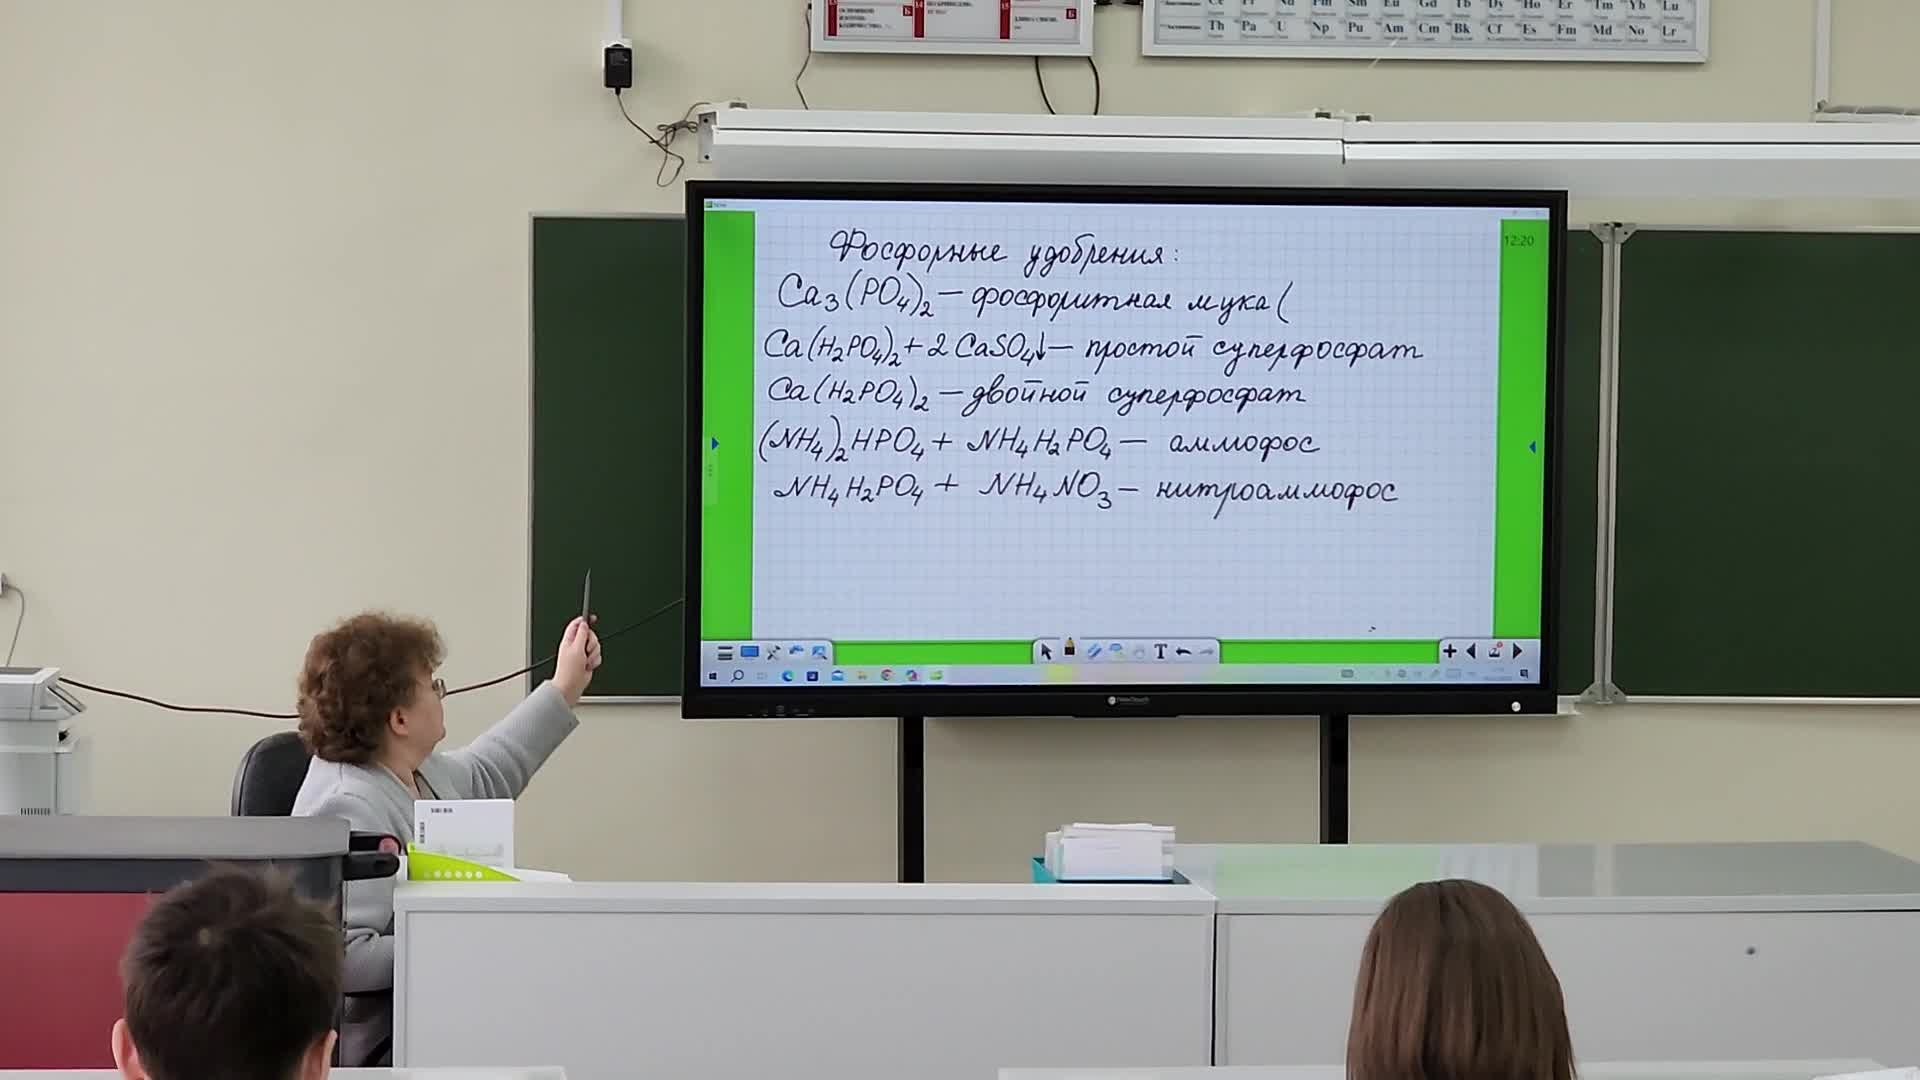 Th Pa U Np Pu Am Cm Bk Cf Es Fm Md No Lr
12:20
Фосфорные удобрения:
Ca₃(PO₄)₂ — фосфоритная мука (
Ca(H₂PO₄)₂ + 2CaSO₄↓ — простой суперфосфат
Ca(H₂PO₄)₂ — двойной суперфосфат
(NH₄)₂HPO₄ + NH₄H₂PO₄ — аммофос
NH₄H₂PO₄ + NH₄NO₃ — нитроаммофос
T